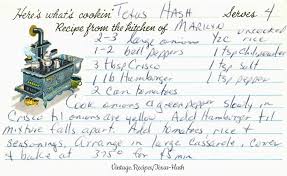 Here's what's cookin' Texas Hash Serves 4
Recipe from the kitchen of Marilyn
2-3 large onions ½c rice uncooked
1-2 bell peppers 1 tsp chili powder
3 tbsp Crisco 1 tsp salt
1 lb Hamburger 1 tsp pepper
2 can tomatoes
Cook onions & green pepper slowly in
Crisco til onions are yellow. Add Hamburger til
mixture falls apart. Add tomatoes, rice &
seasonings, Arrange in large casserole, cover
& bake at 375° for 45 min
Vintage.Recipes/Texas-Hash